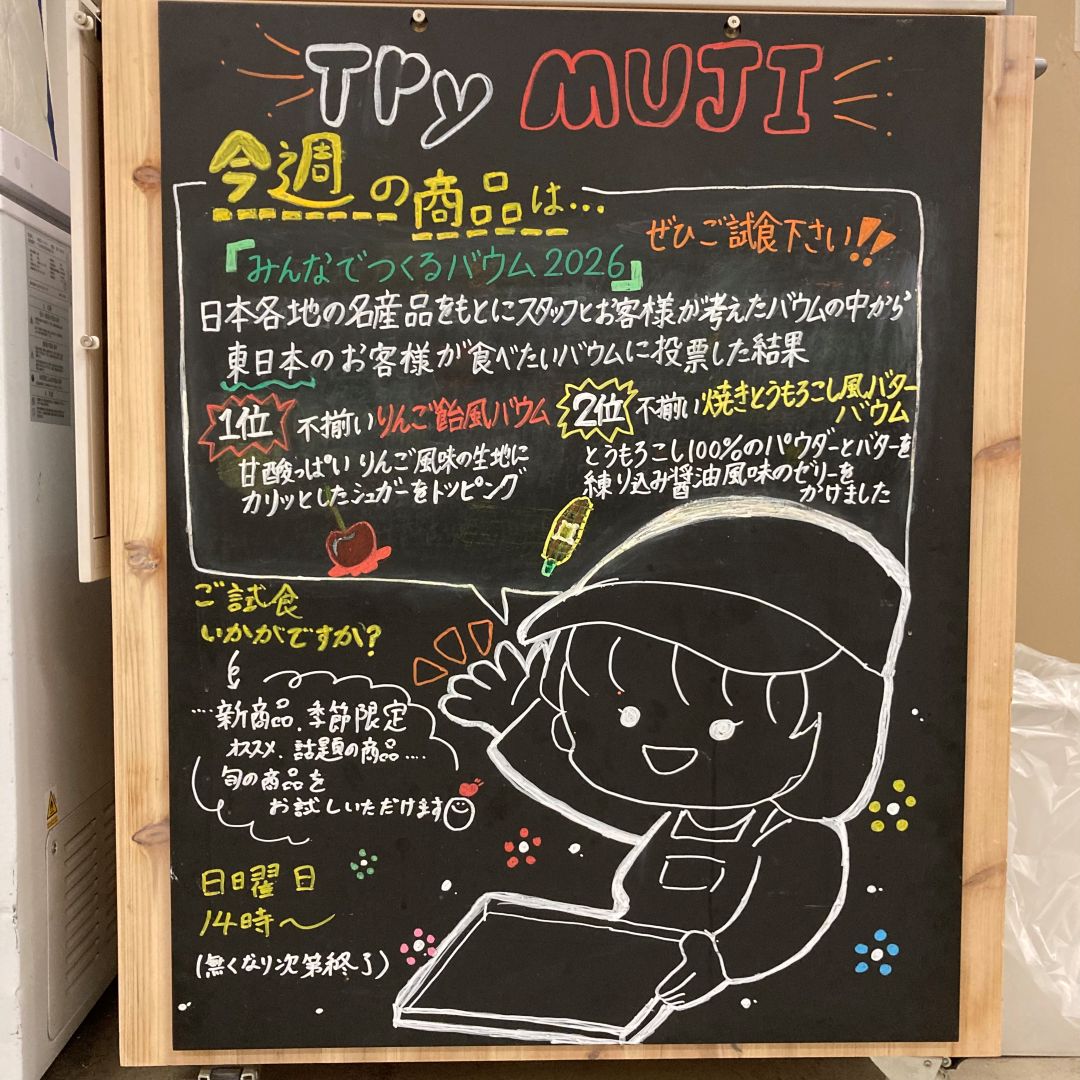 Try MUJI
今週の商品は...
ぜひご試食下さい!!
『みんなでつくるバウム2026』
日本各地の名産品をもとにスタッフとお客様が考えたバウムの中から
東日本のお客様が食べたいバウムに投票した結果
1位 不揃いりんご飴風バウム
甘酸っぱいりんご風味の生地に
カリッとしたシュガーをトッピング
2位 不揃い焼きとうもろこし風バター
バウム
とうもろこし100%のパウダーとバターを
練り込み醤油風味のゼリーを
かけました
ご試食
いかがですか?
....新商品、季節限定
オススメ、話題の商品....
旬の商品を
お試しいただけます
日曜日
14時〜
(無くなり次第終了)